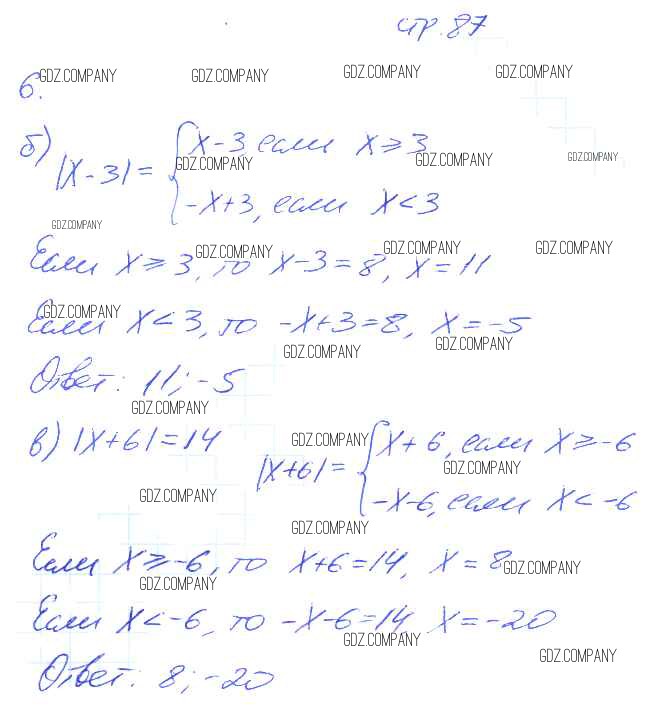 стр. 87
GDZ.COMPANY GDZ.COMPANY GDZ.COMPANY GDZ.COMPANY
6.
б) |x-3| = { x-3, если x ≥ 3
GDZ.COMPANY GDZ.COMPANY GDZ.COMPANY
-x+3, если x < 3
GDZ.COMPANY
Если x ≥ 3, то x-3=8, x=11
GDZ.COMPANY GDZ.COMPANY GDZ.COMPANY
Если x < 3, то -x+3=8, x=-5
GDZ.COMPANY GDZ.COMPANY GDZ.COMPANY
Ответ: 11; -5
GDZ.COMPANY
в) |x+6|=14 |x+6| = { x+6, если x ≥ -6
GDZ.COMPANY GDZ.COMPANY
-x-6, если x < -6
GDZ.COMPANY GDZ.COMPANY
Если x ≥ -6, то x+6=14, x=8
GDZ.COMPANY GDZ.COMPANY
Если x < -6, то -x-6=14 x=-20
GDZ.COMPANY GDZ.COMPANY
Ответ: 8; -20